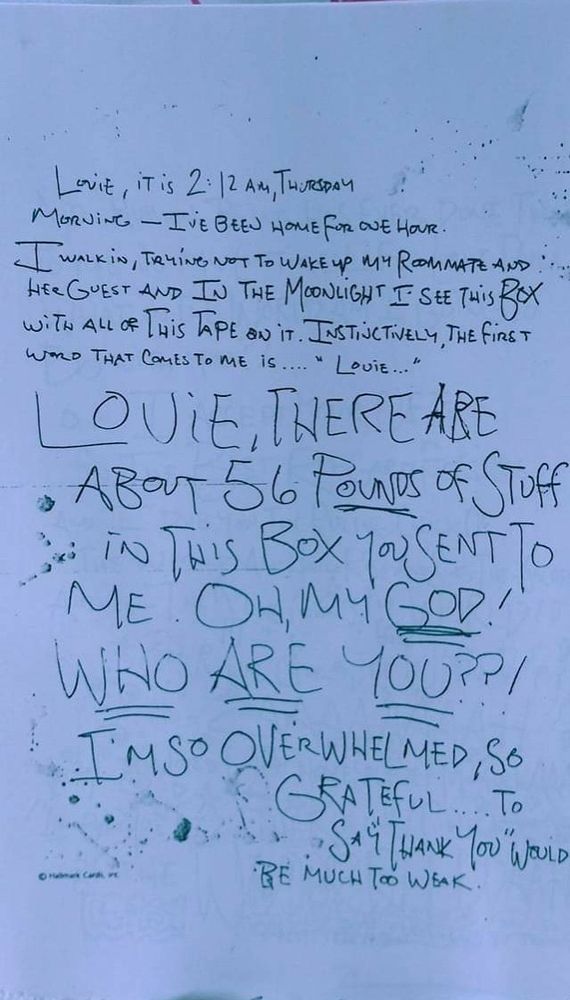 Louie, it is 2:12 AM, Thursday
Morning — I've been home for one hour.
I walk in, trying not to wake up my roommate and
her guest and in the moonlight I see this box
with all of this tape on it. Instinctively, the first
word that comes to me is .... "Louie..."
LOUiE, THERE ARE
ABOUT 56 POUNDS OF STUFF
iN THiS BOX YOU SENT TO
ME. OH, MY GOD!
WHO ARE YOU??!
I'M SO OVERWHELMED, SO
GRATEFUL .... TO
SAY "THANK YOU" WOULD
BE MUCH TOO WEAK.
© Hallmark Cards, Inc.